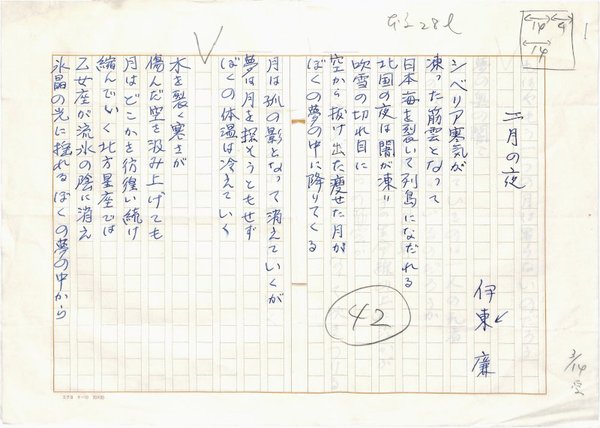 二月の夜
伊東 廉
シベリア寒気が
凍った筋雲となって
日本海を裂いて列島になだれる
北国の夜は闇が凍り
吹雪の切れ目に
空から抜け出た痩せた月が
ぼくの夢の中に降りてくる
月は狐の影となって消えていくが
夢は月を探そうともせず
ぼくの体温は冷えていく
木を裂く寒さが
傷んだ空を汲み上げても
月はどこかを彷徨い続け
縮んでいく北方星座では
乙女座が流氷の陰に消え
氷晶の光に揺れるぼくの夢の中から
42
14
9
14
1
3/14 受